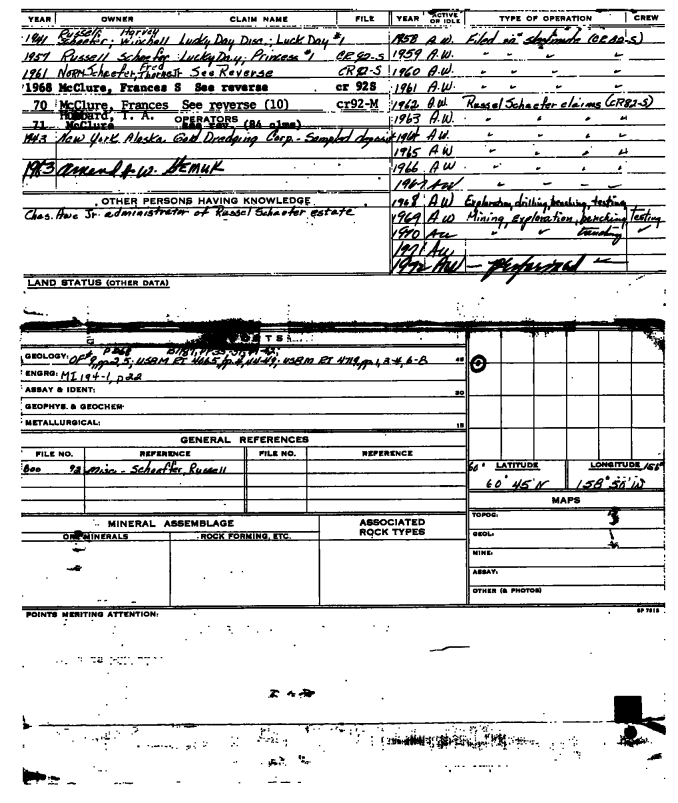 YEAR OWNER CLAIM NAME FILE YEAR ACTIVE OR IDLE TYPE OF OPERATION CREW
1941 Russell Schaefer; Harvey Winchell Lucky Day Disc.; Luck Day #1 1958 A.W. Filed in (CR 92-S)
1957 Russell Schaefer Lucky Day, Princess #1 CR 92-S 1959 A.W. " " " "
1961 Norm Schaefer, Fred See Reverse CR 92-S 1960 A.W. " " " "
1968 McClure, Frances S See reverse cr 92S 1961 A.W. " " " "
70 McClure, Frances See reverse (10) cr92-M 1962 A.W. Russel Schaefer claims (CR92-S)
71 Hubbard, T. A. McClure OPERATORS See rev. (84 clms) 1963 A.W. " " " "
1943 New York Alaska Gold Dredging Corp. - Sampled deposit 1964 A.W. " " " "
1965 A.W. " " " "
1983 amend A.W. 1966 A.W. " " " "
1967 A.W. " " "
OTHER PERSONS HAVING KNOWLEDGE 1968 A.W. Exploration, drilling, benching, testing
Chas. Awe Jr. administrator of Russel Schaefer estate 1969 A.W. Mining, exploration, benching, testing
1970 AW " " trenching "
1971 AW
1972 AW - performed -
LAND STATUS (OTHER DATA)
GEOLOGY: OF #9, pp 2, 5; USBM RI 4065, pp 4, 44-49; USBM RI 4719, pp 1, 3-4, 6-8 45
ENGRG: MI 194-1, p22
ASSAY & IDENT: 30
GEOPHYS. & GEOCHEM:
METALLURGICAL: 15
GENERAL REFERENCES
FILE NO. REFERENCE FILE NO. REFERENCE
92 Misc. - Schaeffer, Russell
60° LATITUDE LONGITUDE 156°
60° 45' N 158° 50' W
MAPS
MINERAL ASSEMBLAGE ASSOCIATED ROCK TYPES
ORE MINERALS ROCK FORMING, ETC.
TOPOG: 3
GEOL:
MINE:
ASSAY:
OTHER (& PHOTOS)
POINTS MERITING ATTENTION: SP 7615